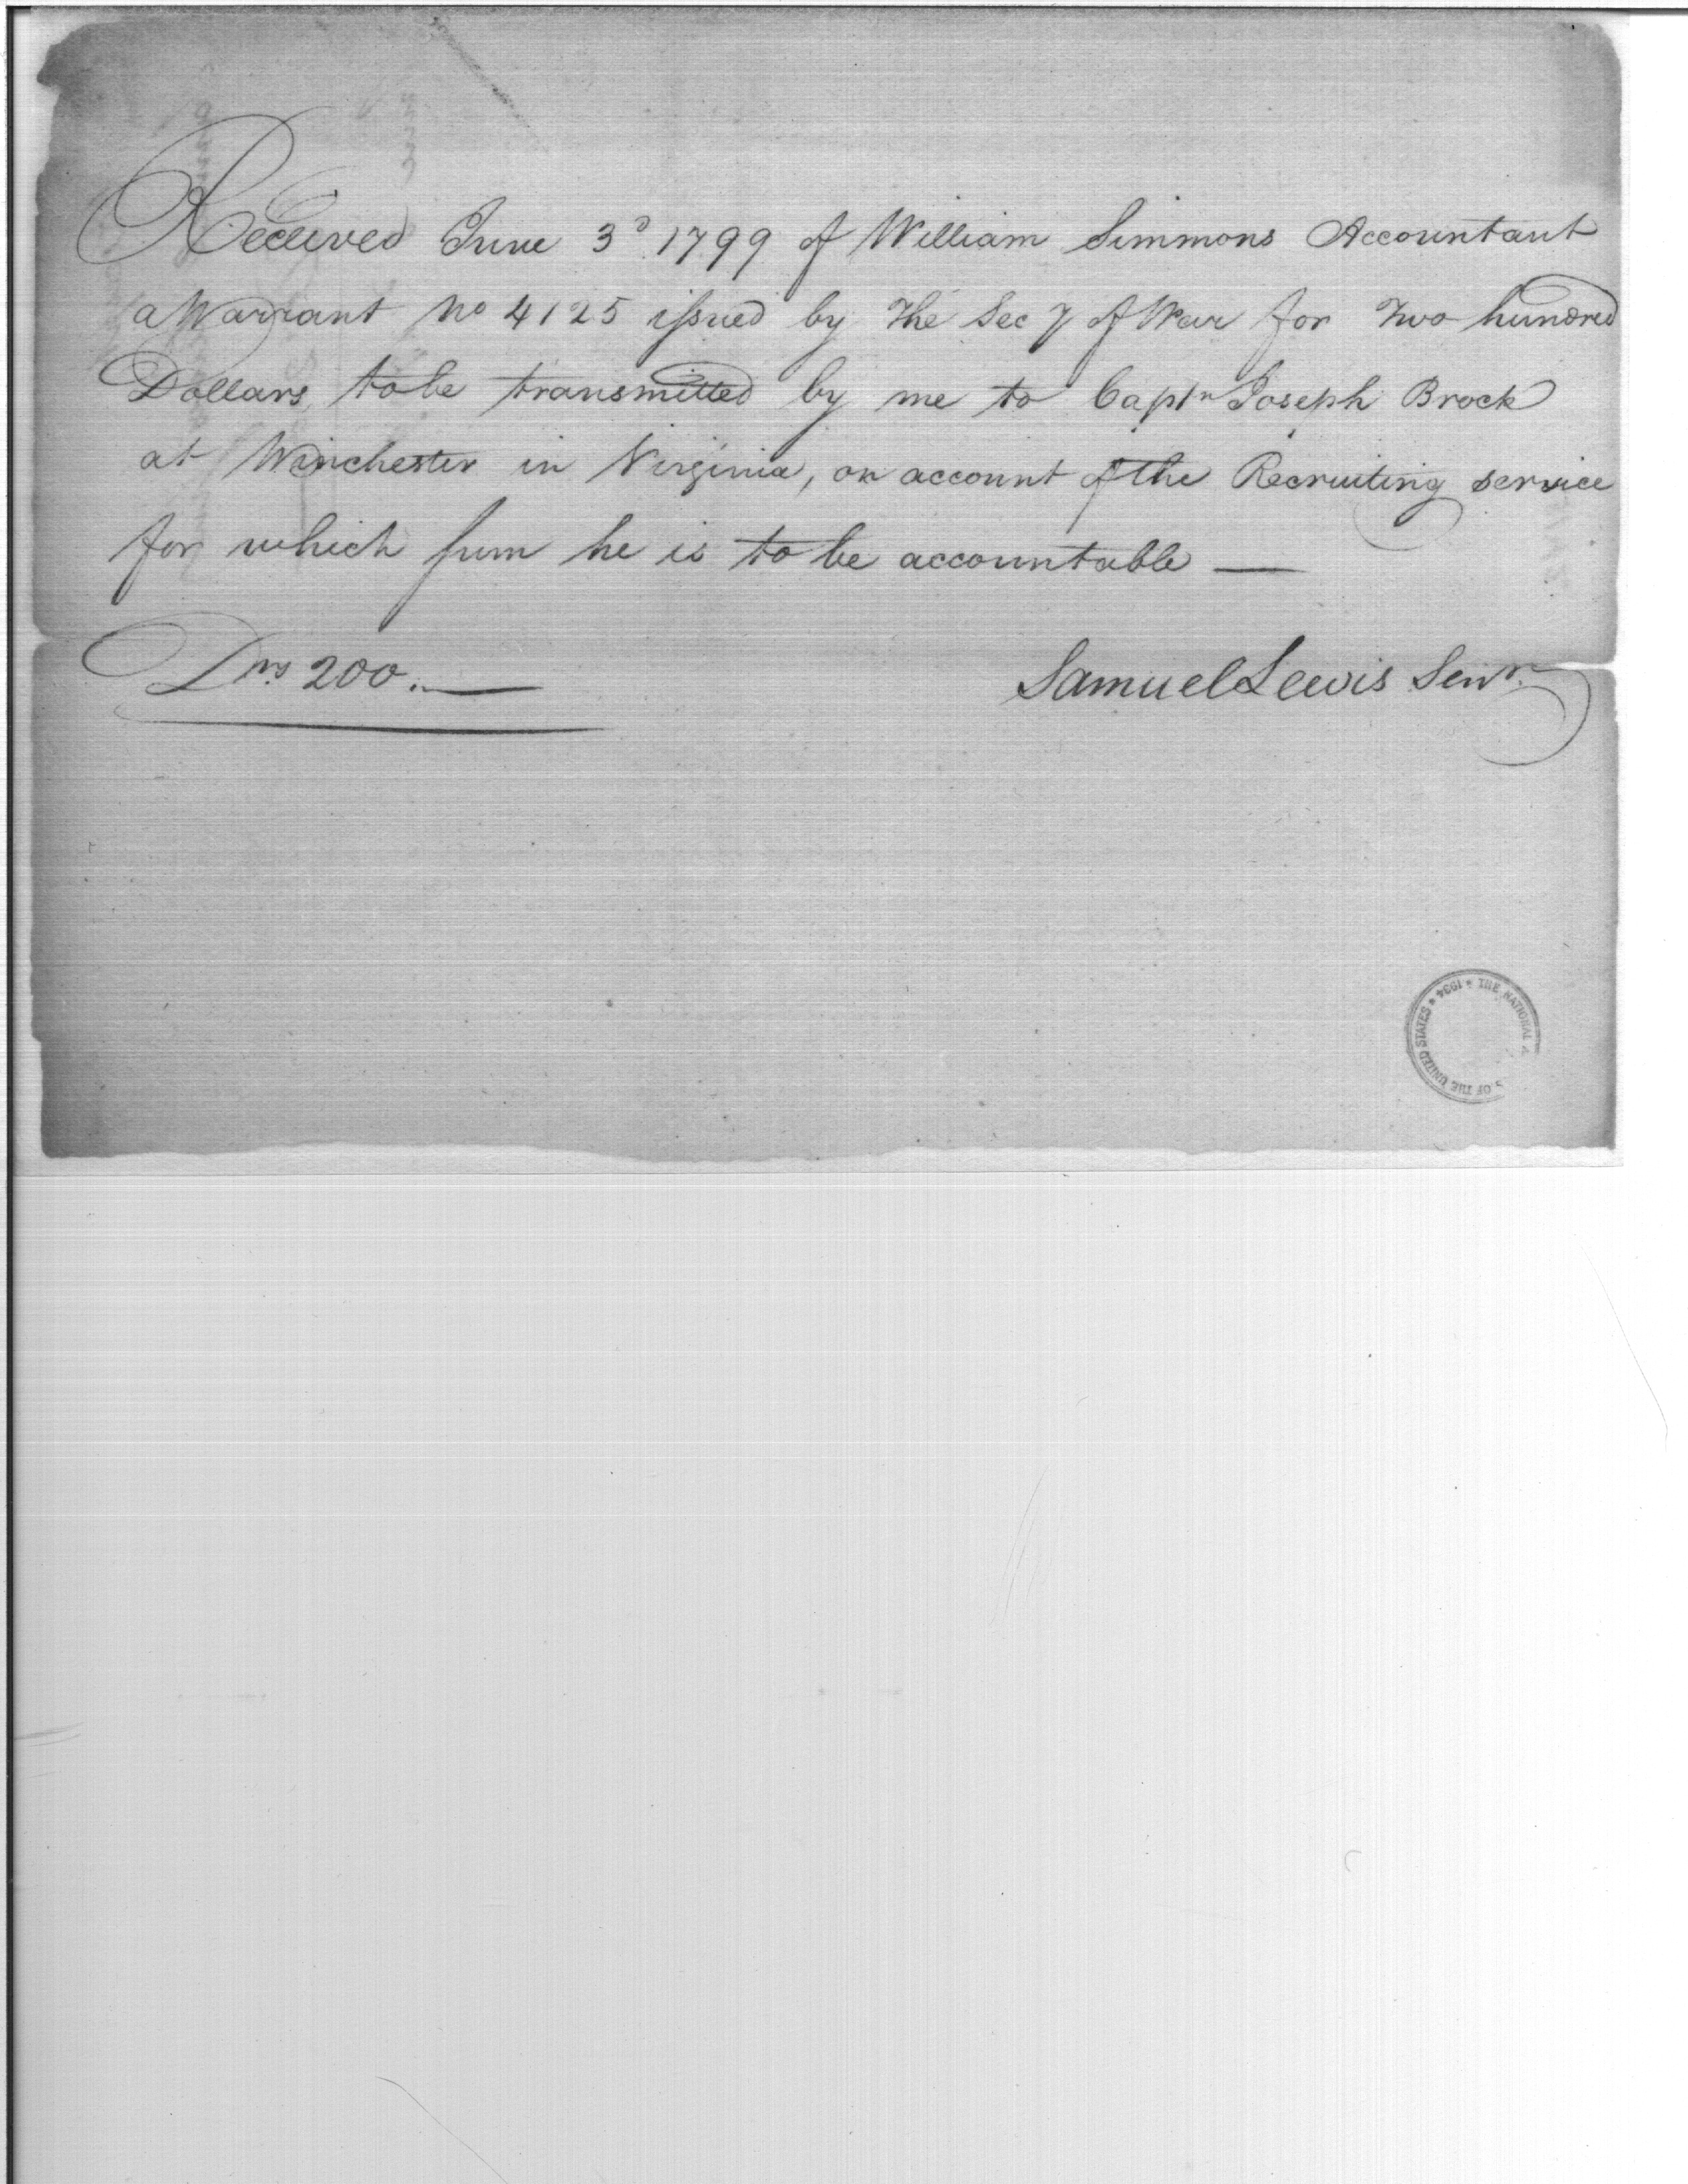 Received June 3d 1799 of William Simmons Accountant
a Warrant No 4125 issued by the Secy of War for Two hundred
Dollars, to be transmitted by me to Captn Joseph Brock
at Winchester in Virginia, on account of the Recruiting service
for which sum he is to be accountable —
Drs 200. —
Samuel Lewis Senr.
THE NATIONAL
S OF THE UNITED STATES * 1934 *